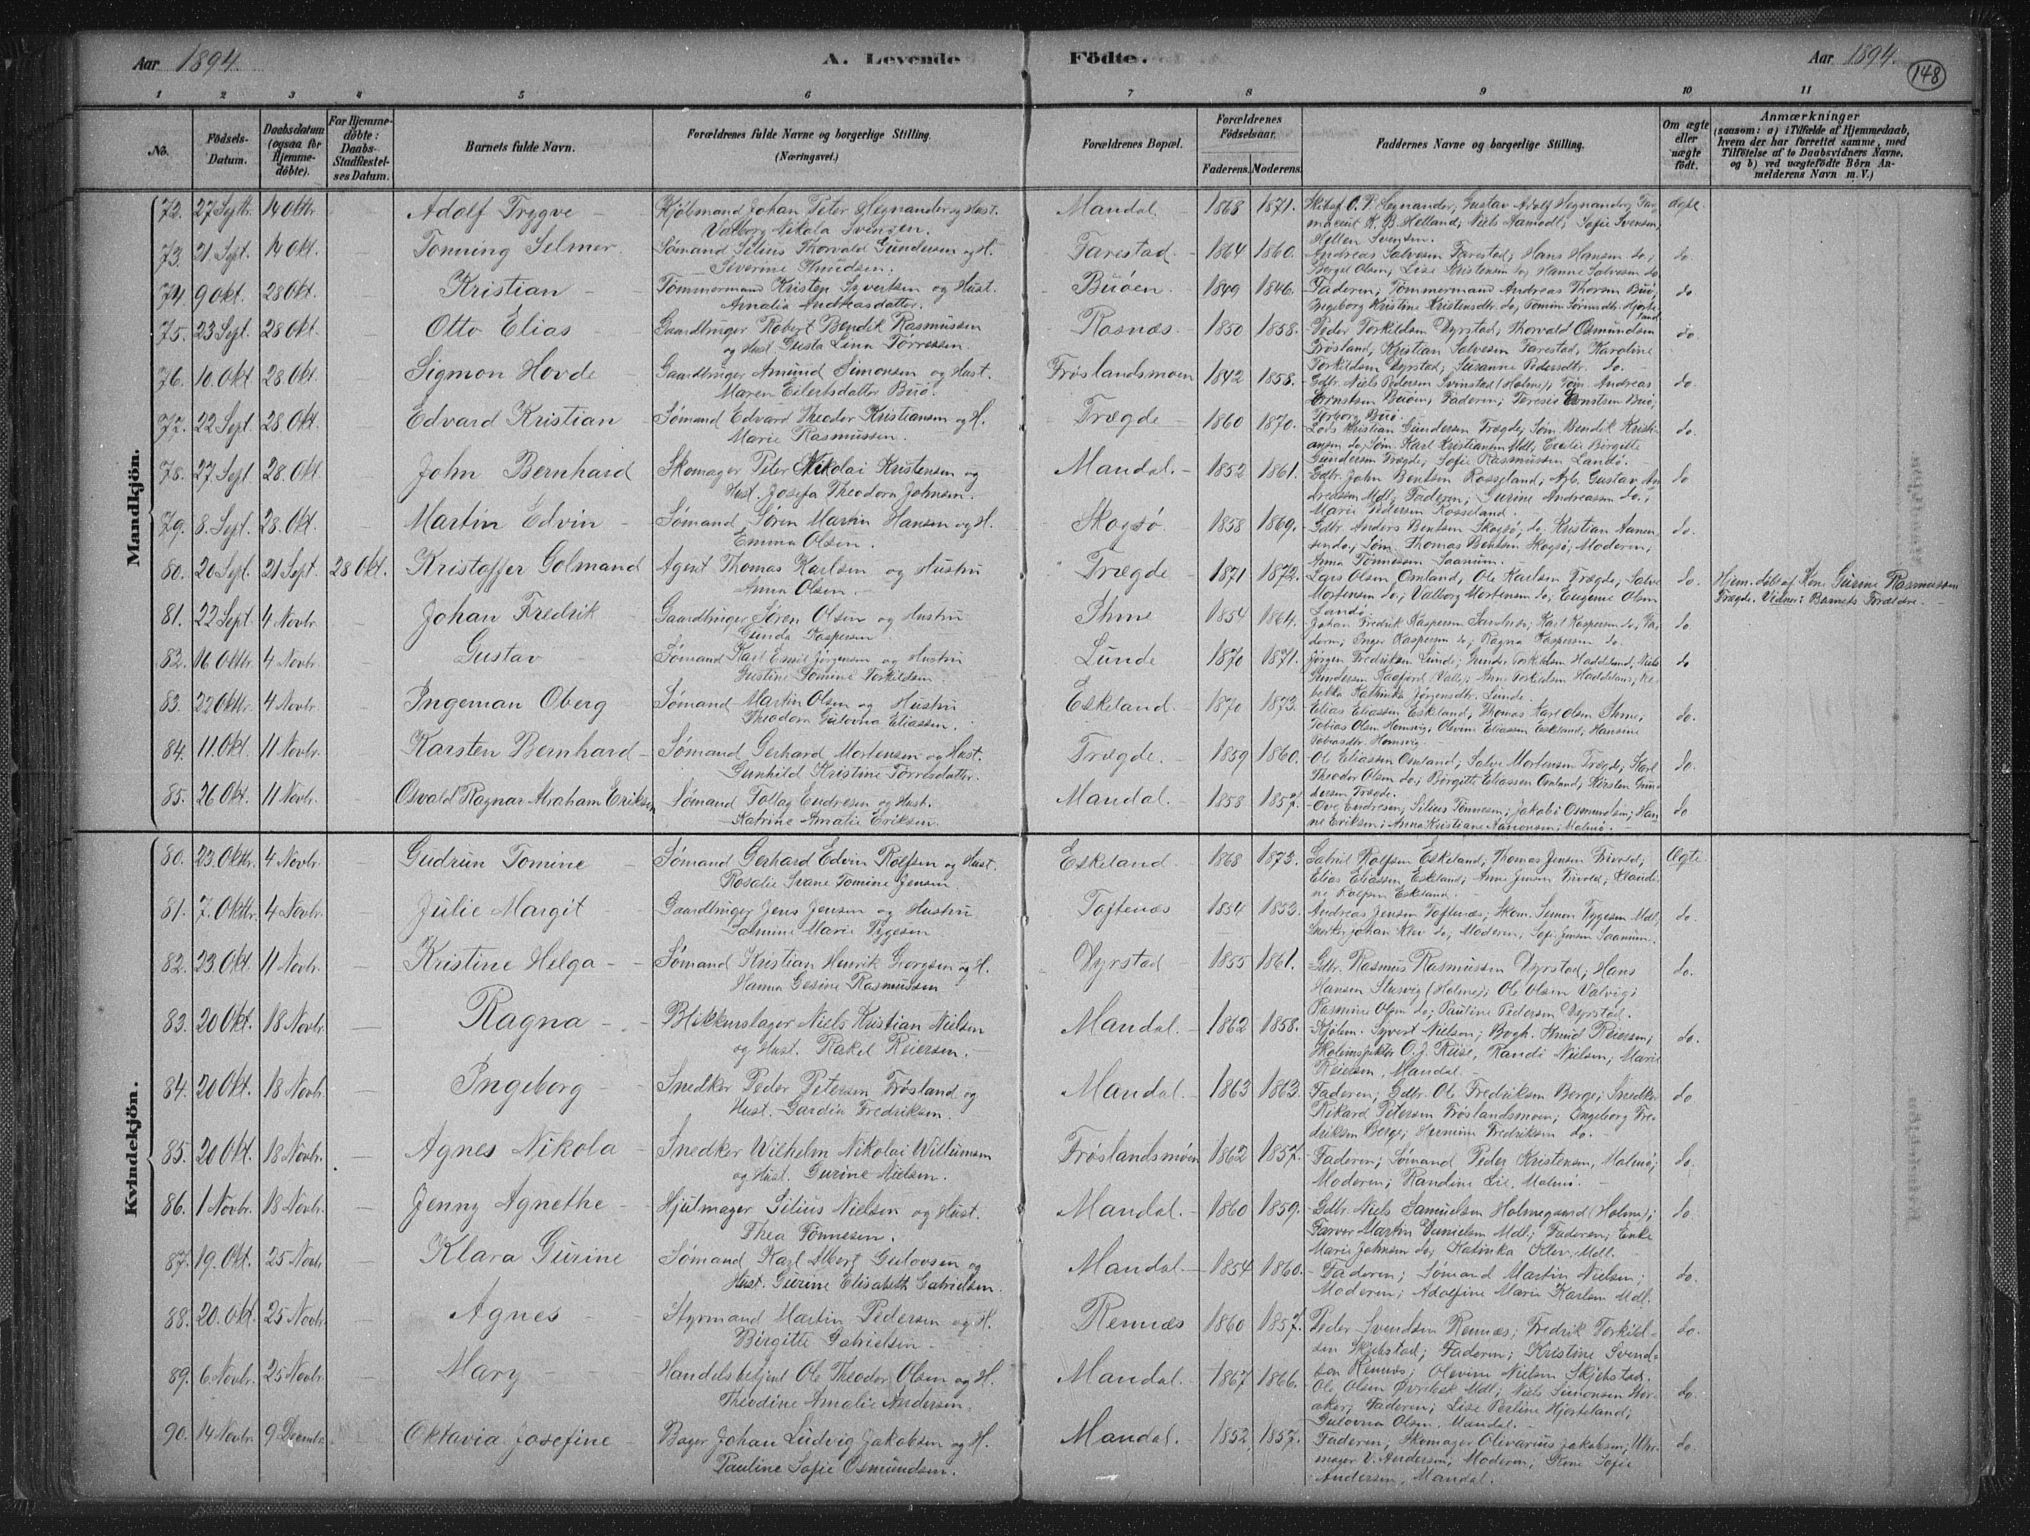 Aar 1894. A. Levende Födte. Aar 1894. 148
1 2 3 4 5 6 7 8 9 10 11
No. Födsels-Datum. Daabsdatum (ogsaa for Hjemme-döbte). For Hjemme-döbte: Daabs-Stadfæstel-ses Datum. Barnets fulde Navn. Forældrenes fulde Navne og borgerlige Stilling. (Næringsvei.) Forældrenes Bopæl. Forældrenes Födselsaar. Faderens. Moderens. Faddernes Navne og borgerlige Stilling. Om ægte eller uægte födt. Anmærkninger (saasom: a) i Tilfælde af Hjemmedaab, hvem der har forrettet samme, med Tilföielse af to Daabsvidners Navne, og b) ved uægtefödte Börn An-melderens Navn m. V.)
Mandkjön.
72. 27 Septr. 14 Oktr. Adolf Trygve Kjöbmand Johan Peter Hegnander og Hust. Valborg Nikola Svensen Mandal 1868 1871. ægte
73. 21 Sept. 14 Okt. Tonning Selmer Sømand Silius Thorvald Gundersen og H. Severine Knudsen. Farestad 1864 1860. Andreas Salvesen Farestad, Hans Hansen do, Berget Olsen, Lise Kristensen do, Hanne Salvesen do do.
74 9 Okt. 28 Okt. Kristian Tømmermand Kristen Syvertsen og Hust. Amalia Andreasdatter. Buöen 1849 1846. Faderen, Tømmermand Andreas Thorsen Buö, Ingeborg Kristine Kristensdtr. do, do
75. 23 Sept. 28 Okt. Otto Elias Gaardbruger Robert Bendik Rasmussen og Hust. Gusta Lina Torresen. Rosnæs 1850 1858. Peder Torkildsen Dyrstad, Thorvald Osmundsen Frøsland, Kristian Salvesen Farestad, Karoline Torkildsen Dyrstad, Susanne Pedersdtr. do. do
76. 10. Okt. 28 Okt. Sigmon Hovde Gaardbruger Amund Simonsen og Hust. Maren Eilertsdatter Buö. Frøslandsmoen 1842 1858. Gdbr. Niels Pedersen Svinstad (Holme), Søm. Andreas Ernstsen Buöen, Faderen, Terese Ernstsen Buö, do.
77. 22 Sept. 28 Okt. Edvard Kristian Sømand Edvard Theodor Kristiansen og H. Marie Rasmussen. Trægde 1860 1870. Lods Kristian Gundersen Trægde, Søm. Bendik Kristi-ansen do, Søm. Karl Kristiansen Mdl, Emilie Birgitte Gundersen Trægde, Sofie Rasmussen Landö. do.
78. 27 Sept. 28. Okt. John Bernhard Skomager Peter Nikolai Kristensen og Hust. Josefa Theodora Johnsen. Mandal. 1852 1861. Gdbr. John Bentsen Rosseland, Arb. Gustav An-dreassen Mdl, Faderen, Gurine Andreassen do, Marie Pedersen Rosseland. do
79. 8. Sept. 28. Okt. Martin Edvin Sømand Søren Martin Hansen og H. Emma Olsen. Skogsø 1858 1869. Gdbr. Anders Bentsen Skogsø, do, Kristian Aanen-sen do, Søm. Thomas Bentsen Skogsø, Moderen, Anna Tønnesen Saanum. do.
80. 20 Sept. 21 Sept. 28 Okt. Kristoffer Golmand Agent Thomas Karlsen og Hustru Anna Olsen. Trægde 1871 1872. Lars Olsen Omland, Ole Karlsen Trægde, Salve Mortensen do, Valborg Mortensen do, Eugenie Olsen Landö. do. Hjem. døbt af Kon. Gurine Rasmussen Trægde. Vidner: Barnets Forældre.
81. 22 Sept. 4 Novbr. Johan Fredrik Gaardbruger Søren Olsen og Hustru Gunda Kaspersen Ihme 1854 1864. Johan Fredrik Kaspersen, Karl Kaspersen do, Fa-deren, Inger Kaspersen do, Ragna Kaspersen do. do.
82. 16 Oktr. 4 Novbr. Gustav Sømand Karl Emil Jørgensen og Hustru Gustine Tomine Torkildsen. Lunde 1870 1871. Jørgen Fredriksen Lunde, Gunder Torkildsen Haddeland, Niels Gundersen, Anne Torkildsen Haddeland, Re-bekka Kathinka Jørgensdtr. Lunde do
83. 22 Oktr. 4 Novbr. Ingeman Oberg Sømand Martin Olsen og Hustru Theodora Gulovna Eliassen. Eskeland. 1870 1873. Elias Eliassen Eskeland, Thomas Karl Olsen Ihme, Tobias Olsen Homsvig, Olevine Eliassen Eskeland, Hansine Tobiasdtr. Homsvig. do.
84. 11. Okt. 11 Novbr. Karsten Bernhard Sømand Gerhard Mortensen og Hust. Gunhild Kristine Torresdatter. Trægde. 1859 1860. Ole Eliassen Omland, Salve Mortensen Trægde, Karl Theodor Olsen do, Birgitte Eliassen Omland, Kirsten Gun-dersen Trægde. do.
85. 26 Okt. 11 Novbr. Osvald Ragnar Abraham Eriksen Sømand Tollag Endresen og Hust. Katrine Amalie Eriksen. Mandal. 1858 1857. Ove Endresen, Silius Tønnesen, Jakob Osmundsen, Han-ne Eriksen, Anna Kristiane Aanonsen, Malmø. do
Kvindekjön.
80. 23 Oktr. 4 Novbr. Gudrun Tomine Sømand Gerhard Edvin Rolfsen og Hust. Rosalie Svane Tomine Jensen. Eskeland 1868 1873. Gabriel Rolfsen Eskeland, Thomas Jensen Frivold, Elias Eliassen Eskeland, Anne Jensen Frivold, Klaudi-ne Rolfsen Eskeland. Ægte.
81. 7. Oktbr. 4 Novbr. Julie Margit Gaardbruger Jens Jensen og Hustru Salmine Marie Tygesen. Toftenæs 1854 1853. Andreas Jensen Toftenæs, Skom. Simon Tygesen Mdl, Snedker Johan Klev do, Moderen, Sofie Jensen Saanum. do.
82. 23 Okt. 11 Novbr. Kristine Helga Sømand Kristian Henrik Georgsen og H. Hanna Gesine Rasmussen Dyrstad 1855 1861. Gdbr. Rasmus Rasmussen Dyrstad, Hans Hansen Stusvig (Holme), Ole Olsen Valvig, Rasmine Olsen do, Pauline Pedersen Dyrstad. do.
83. 20 Okt. 18 Novbr. Ragna Blikkenslager Niels Kristian Nielsen og Hust. Rakel Reiersen. Mandal. 1862 1858. Kjöbm. Syvert Nielsen, Bogh. Knud Reiersen, Skoleinspektør O. J. Reise, Randi Nielsen, Marie Reiersen, Mandal. do.
84. 20 Okt. 18 Novbr. Ingeborg Snedker Peder Petersen Frøsland og Hust. Gardia Fredriksen. Mandal. 1863 1863. Faderen, Gdbr. Ole Fredriksen Berge, Snedker Rikard Petersen Frøslandsmoen, Ingeborg Fre-driksen Berge, Hermine Fredriksen do. do
85. 20 Okt. 18 Novbr. Agnes Nikola Snedker Wilhelm Nikolai Willumsen og Hust. Gurine Nielsen. Frøslandsmoen 1862 1857. Faderen, Sømand Peder Kristensen, Malmø, Moderen, Randine Lie, Malmø. do.
86. 1 Novbr. 18 Novbr. Jenny Agnethe Hjulmager Silius Nielsen og Hust. Thea Tønnesen. Mandal. 1860 1859. Gdbr. Niels Samuelsen Holmegaard (Holme), Farver Martin Danielsen Mdl, Faderen, Enke Marie Johnsen do, Katinka Klev, Mdl. do.
87. 19. Okt. 25 Novbr. Klara Gurine Sømand Karl Albert Gulovsen og Hust. Gurine Elisabeth Gabrielsen. Mandal. 1854 1860. Faderen, Sømand Martin Nielsen, Moderen, Adolfine Marie Karlsen Mdl. do.
88. 20. Okt. 25 Novbr. Agnes Styrmand Martin Pedersen og H. Birgitte Gabrielsen Rennæs 1860 1857. Peder Svendsen Rennæs, Fredrik Torkild-sen Skjebstad, Faderen, Kristine Svend-sen Rennæs, Olevine Nielsen Skjebstad. do.
89. 6 Novbr. 25 Novbr. Mary Handelsbetjent Ole Theodor Olsen og H. Theodine Amalie Andersen. Mandal. 1867 1866. Ole Olsen Øvrebøk Mdl, Niels Simonsen, Faderen, Lise Perline Hjorteland, Gulovna Olsen, Mandal. do.
90. 14 Novbr. 9 Decembr. Oktavia Josefine Bager Johan Ludvig Jakobsen og H. Pauline Sofie Osmundsen. Mandal. 1852 1857. Faderen, Skomager Olivarius Jakobsen, Uhr-mager V. Andersen, Moderen, Sofie Andersen, Mandal. do.